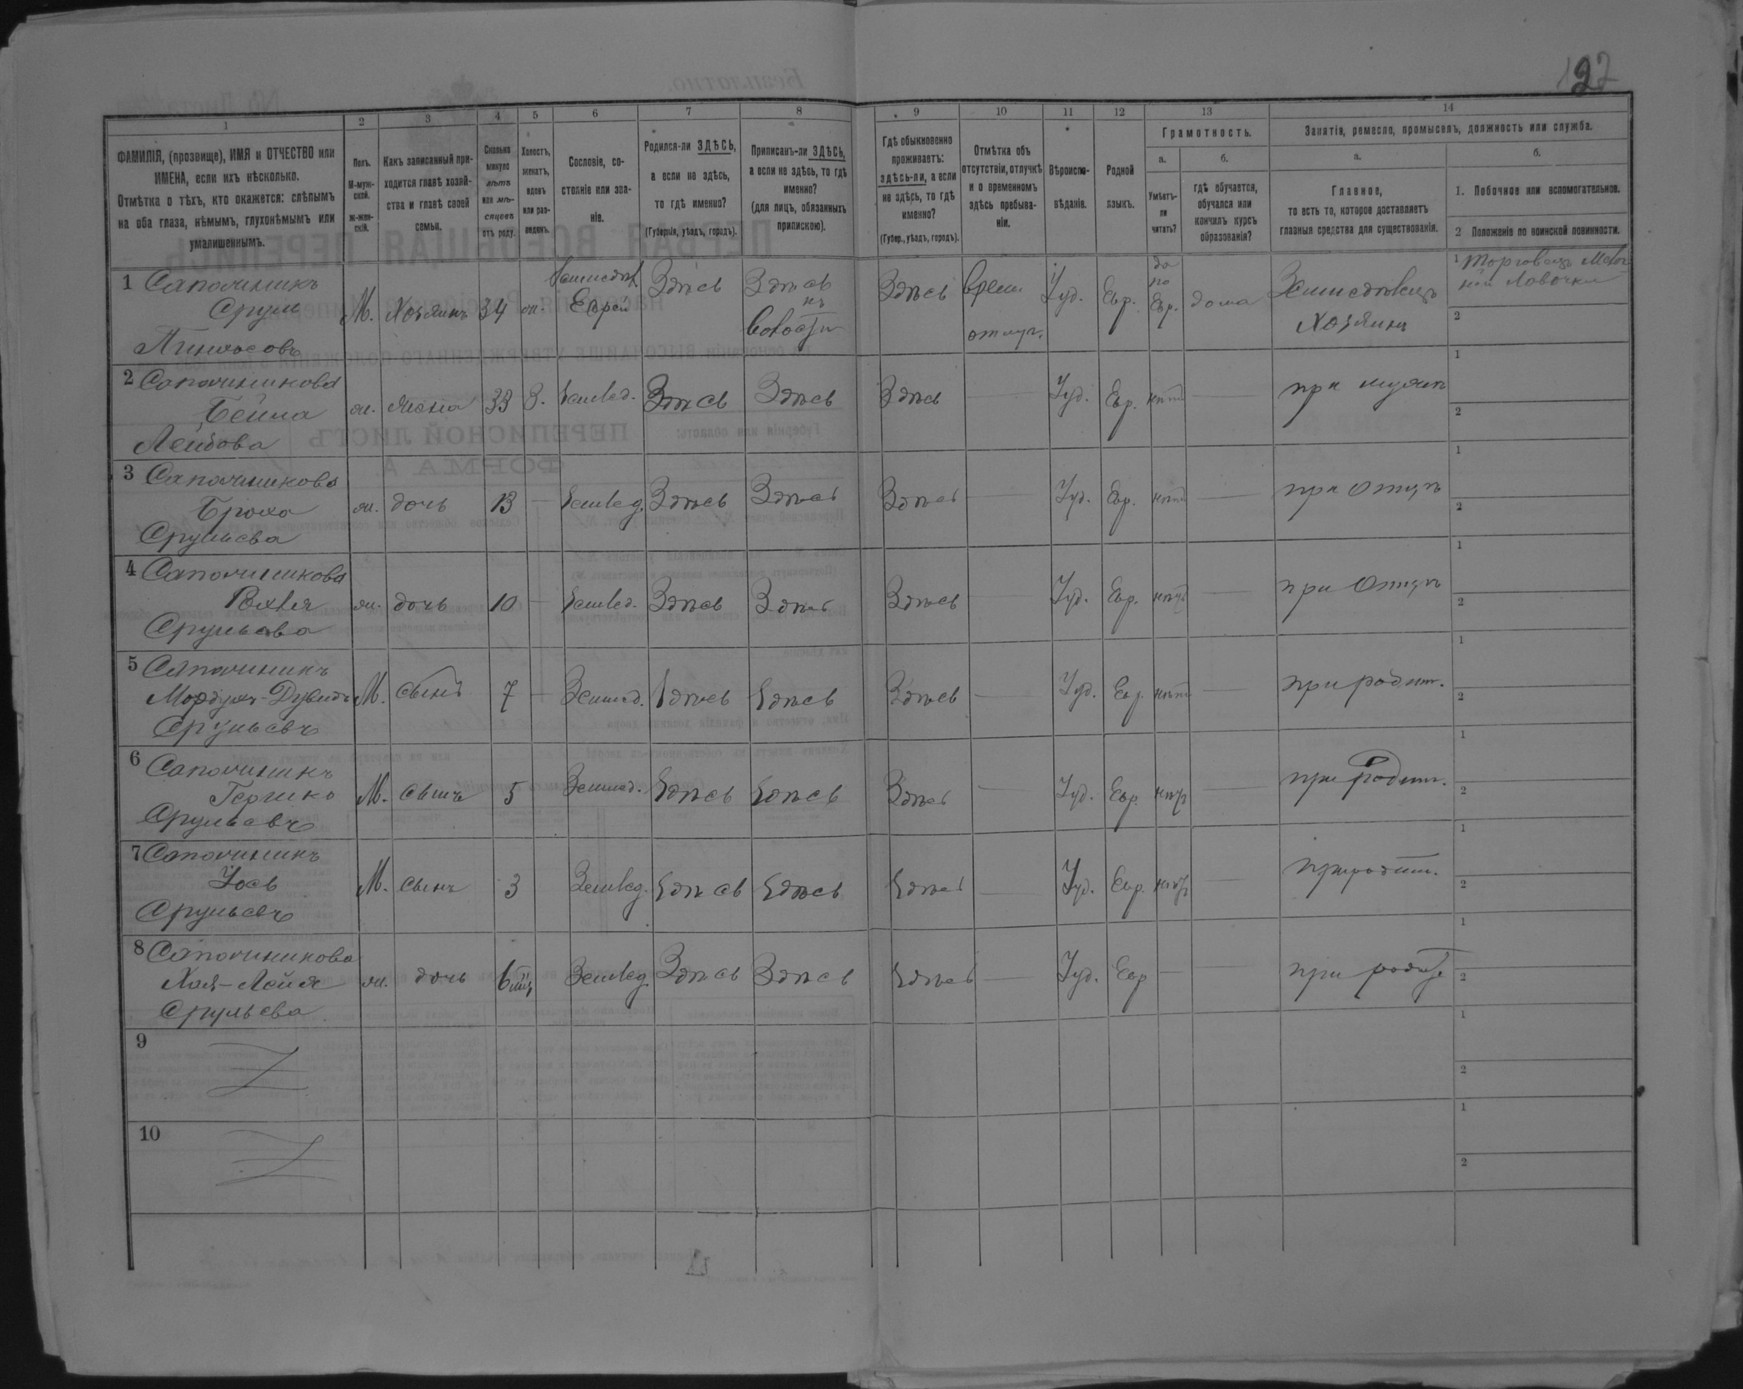 127
1 2 3 4 5 6 7 8 9 10 11 12 13 14
ФАМИЛІЯ, (прозвище), ИМЯ и ОТЧЕСТВО или
ИМЕНА, если ихъ нѣсколько.
Отмѣтка о тѣхъ, кто окажется: слѣпымъ
на оба глаза, нѣмымъ, глухонѣмымъ или
умалишеннымъ.
Полъ.
М-муж-
ской.
ж-жен-
скій.
Какъ записанный при-
ходится главѣ хозяй-
ства и главѣ своей
семьи.
Сколько
минуло
лѣтъ
или мѣ-
сяцевъ
отъ роду.
Холостъ,
женатъ,
вдовъ
или раз-
веденъ.
Сословіе, со-
стояніе или зва-
ніе.
Родился-ли ЗДѢСЬ,
а если не здѣсь,
то гдѣ именно?
(Губернія, уѣздъ, городъ).
Приписанъ-ли ЗДѢСЬ,
а если не здѣсь, то гдѣ
именно?
(для лицъ, обязанныхъ
припискою).
Гдѣ обыкновенно
проживаетъ:
здѣсь-ли, а если
не здѣсь, то гдѣ
именно?
(Губер., уѣздъ, городъ).
Отмѣтка объ
отсутствіи, отлучкѣ
и о временномъ
здѣсь пребыва-
ніи.
Вѣроиспо-
вѣданіе.
Родной
языкъ.
Грамотность.
а.
Умѣетъ-
ли
читать?
б.
гдѣ обучается,
обучался или
кончилъ курсъ
образованія?
Занятія, ремесло, промыселъ, должность или служба.
а.
Главное,
то есть то, которое доставляетъ
главныя средства для существованія.
б.
1. Побочное или вспомогательное.
2 Положеніе по воинской повинности.
1 Сапочникъ
Сруль
Пинхосовъ
М. Хозяинъ 34 ж. Еврей Здѣсь Здѣсь Здѣсь Іуд. Евр. да по Евр. дома Хозяинъ
1 Торговецъ
2
2 Сапочникова
Бейла
Лейбова
ж. жена 33 З. Земвлд. Здѣсь Здѣсь Здѣсь — Іуд. Евр. нѣтъ — при мужѣ
1
2
3 Сапочникова
Броха
Срульева
ж. дочь 13 — Земвлд. Здѣсь Здѣсь Здѣсь — Іуд. Евр. нѣтъ — при Отцѣ
1
2
4 Сапочникова
Рохля
Срульева
ж. дочь 10 — Земвлд. Здѣсь Здѣсь Здѣсь — Іуд. Евр. нѣтъ — при Отцѣ
1
2
5 Сапочникъ
Мордухъ-Дувидъ
Срульевъ
М. сынъ 7 — Здѣсь Здѣсь Здѣсь — Іуд. Евр. нѣтъ — при родит.
1
2
6 Сапочникъ
Гершко
Срульевъ
М. сынъ 5 Здѣсь Здѣсь Здѣсь — Іуд. Евр. нѣтъ — при Родит.
1
2
7 Сапочникъ
Іось
Срульевъ
М. сынъ 3 Здѣсь Здѣсь Здѣсь — Іуд. Евр. нѣтъ — при родит.
1
2
8 Сапочникова
Хая-Лейя
Срульева
ж. дочь Здѣсь Здѣсь Здѣсь — Іуд. Евр — — при родит
1
2
9
1
2
10
1
2